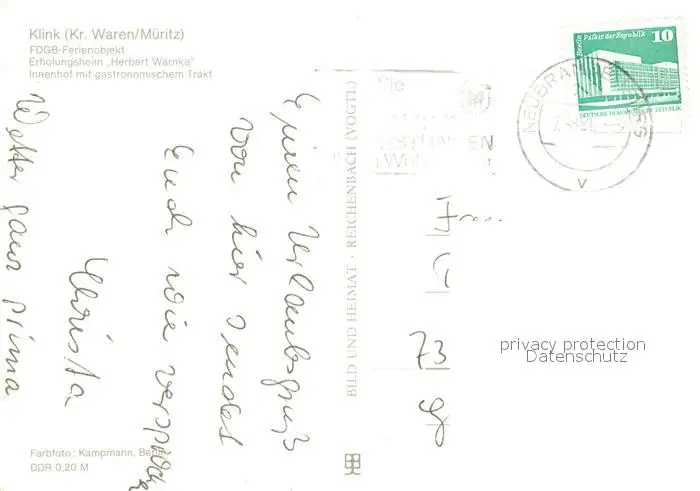 Klink (Kr. Waren/Müritz)
FDGB-Ferienobjekt
Erholungsheim „Herbert Warnke"
Innenhof mit gastronomischem Trakt
Einen Urlaubsgruß
von hier sendet
Euch wie versproch.
Christa
Wetter ganz prima
Farbfoto: Kampmann, Berlin
DDR 0,20 M
BILD UND HEIMAT · REICHENBACH (VOGTL)
Berlin Palast der Republik 10
DEUTSCHE DEMOKRATISCHE REPUBLIK
NEUBRANDENBURG
V
Frau
73
privacy protection
Datenschutz